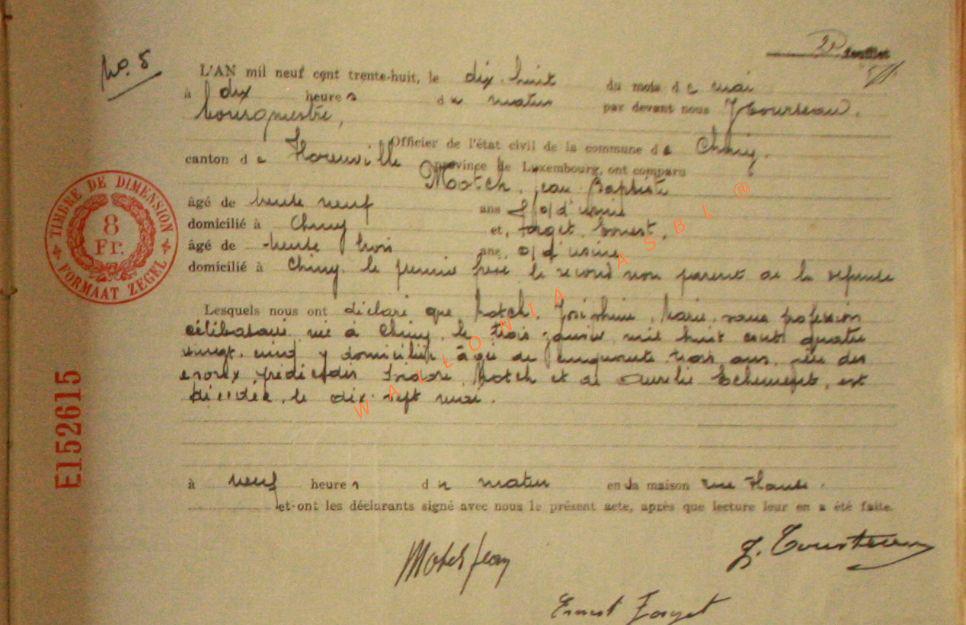 No. 5
L'AN mil neuf cent trente-huit, le dix-huit du mois de mai
à dix heures du matin par devant nous
bourgmestre,
Officier de l'état civil de la commune de Chiny,
canton de Florenville province de Luxembourg, ont comparu
Motch, Jean Baptiste
âgé de trente neuf ans o/ d'usine
domicilié à Chiny et, Forget, Ernest
âgé de trente trois ans, o/ d'usine
domicilié à Chiny, le premier frère le second non parent de la défunte
Lesquels nous ont déclaré que Motch, Joséphine, Marie, sans profession
célibataire, née à Chiny, le trois janvier mil huit cent quatre
vingt-cinq y domiciliée, âgée de cinquante trois ans, fille des
époux prédécédés Isidore Motch et de Aurélie, est
décédée, le dix-sept mai.
à neuf heures du matin en sa maison rue Haute.
et ont les déclarants signé avec nous le présent acte, après que lecture leur en a été faite.
Motch Jean
Ernest Forget
TIMBRE DE DIMENSION
8
Fr.
FORMAAT ZEGEL
E152615
WALLONIA ASBL @